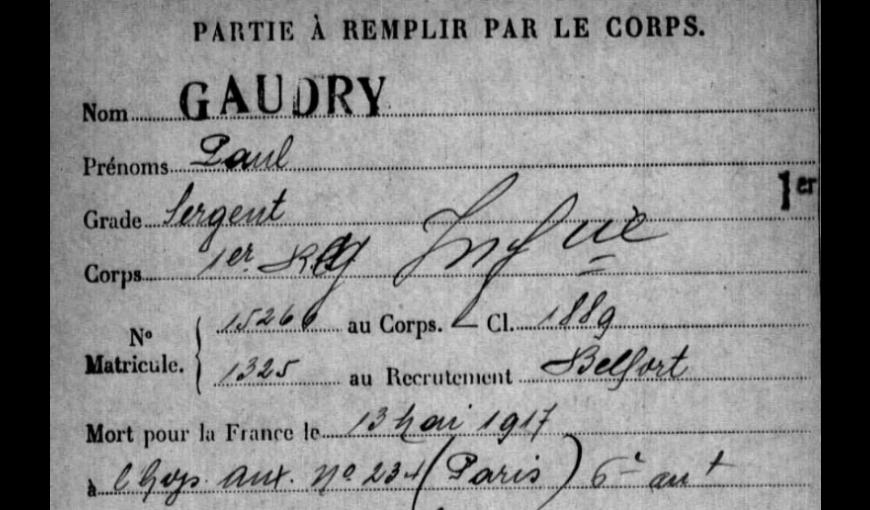 PARTIE À REMPLIR PAR LE CORPS.
Nom GAUDRY
Prénoms Paul
1er
Grade Sergent
Corps 1er Rg Infie
15266 au Corps. — Cl. 1889
No Matricule.
1325 au Recrutement Belfort
Mort pour la France le 13 Mai 1917
à l'hop. aux. No 234 (Paris) 6e arrt